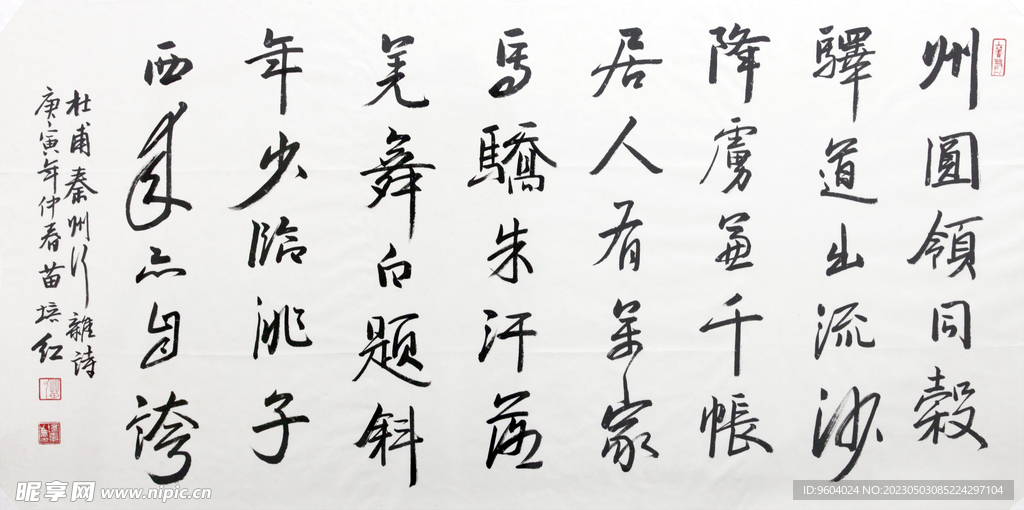 州圓領同穀
驛道出流沙
降虜兼千帳
居人有萬家
馬驕朱汗落
羌舞白題斜
年少臨洮子
西来亦自誇
杜甫秦州行雜詩
庚寅年仲春苗培红
昵享网 www.nipic.cn
ID:9604024 NO:20230503085224297104